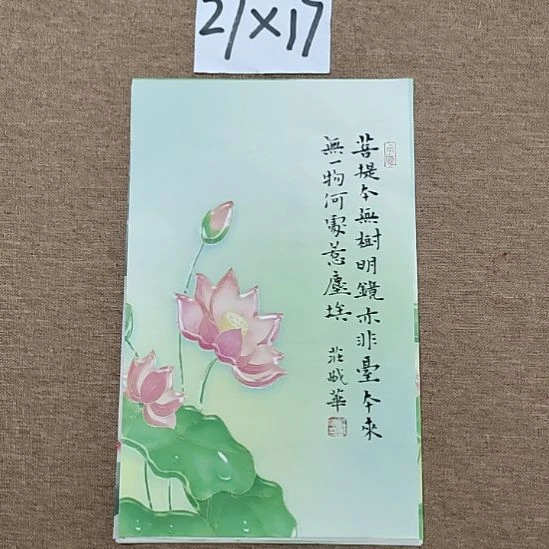 21×17
菩提本無樹明鏡亦非臺本來
無一物何處惹塵埃
莊畯華